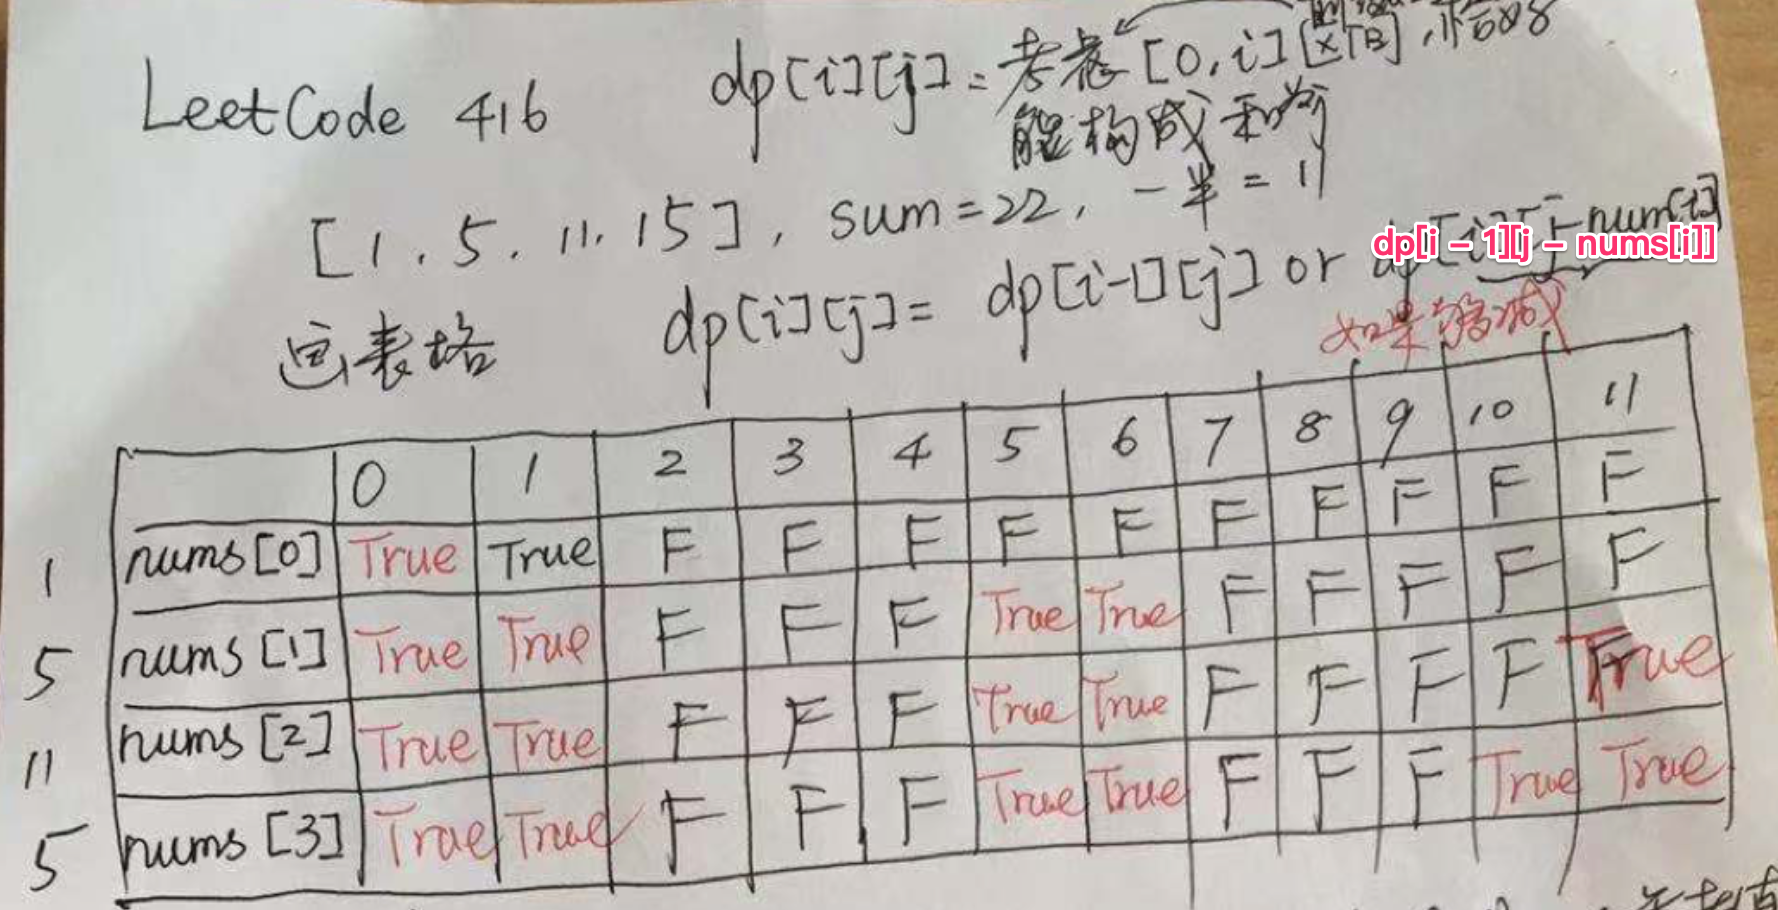 LeetCode 416
dp[i][j] = 考虑 [0,i] 区间, 恰好
能构成和为j
[1. 5. 11. 15], sum=22, 一半 = 11
dp[i][j]= dp[i-1][j] or dp[i][j-num[i]]
dp[i – 1][j – nums[i]]
画表格
如果够减
0 1 2 3 4 5 6 7 8 9 10 11
1 nums[0] True True F F F F F F F F F F
5 nums[1] True True F F F True True F F F F F
11 nums[2] True True F F F True True F F F F True
5 nums[3] True True F F F True True F F F True True